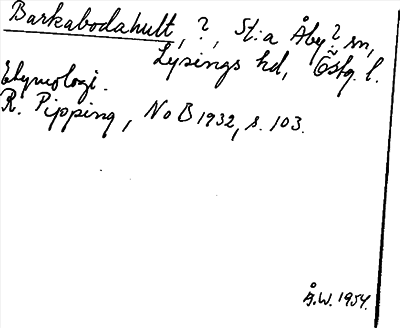 Barkabodahult, ?, St:a Åby? sn,
Lysings hd, Östg. l.
Etymologi.
R. Pipping, NoB 1932, s. 103.
Å.W. 1954.